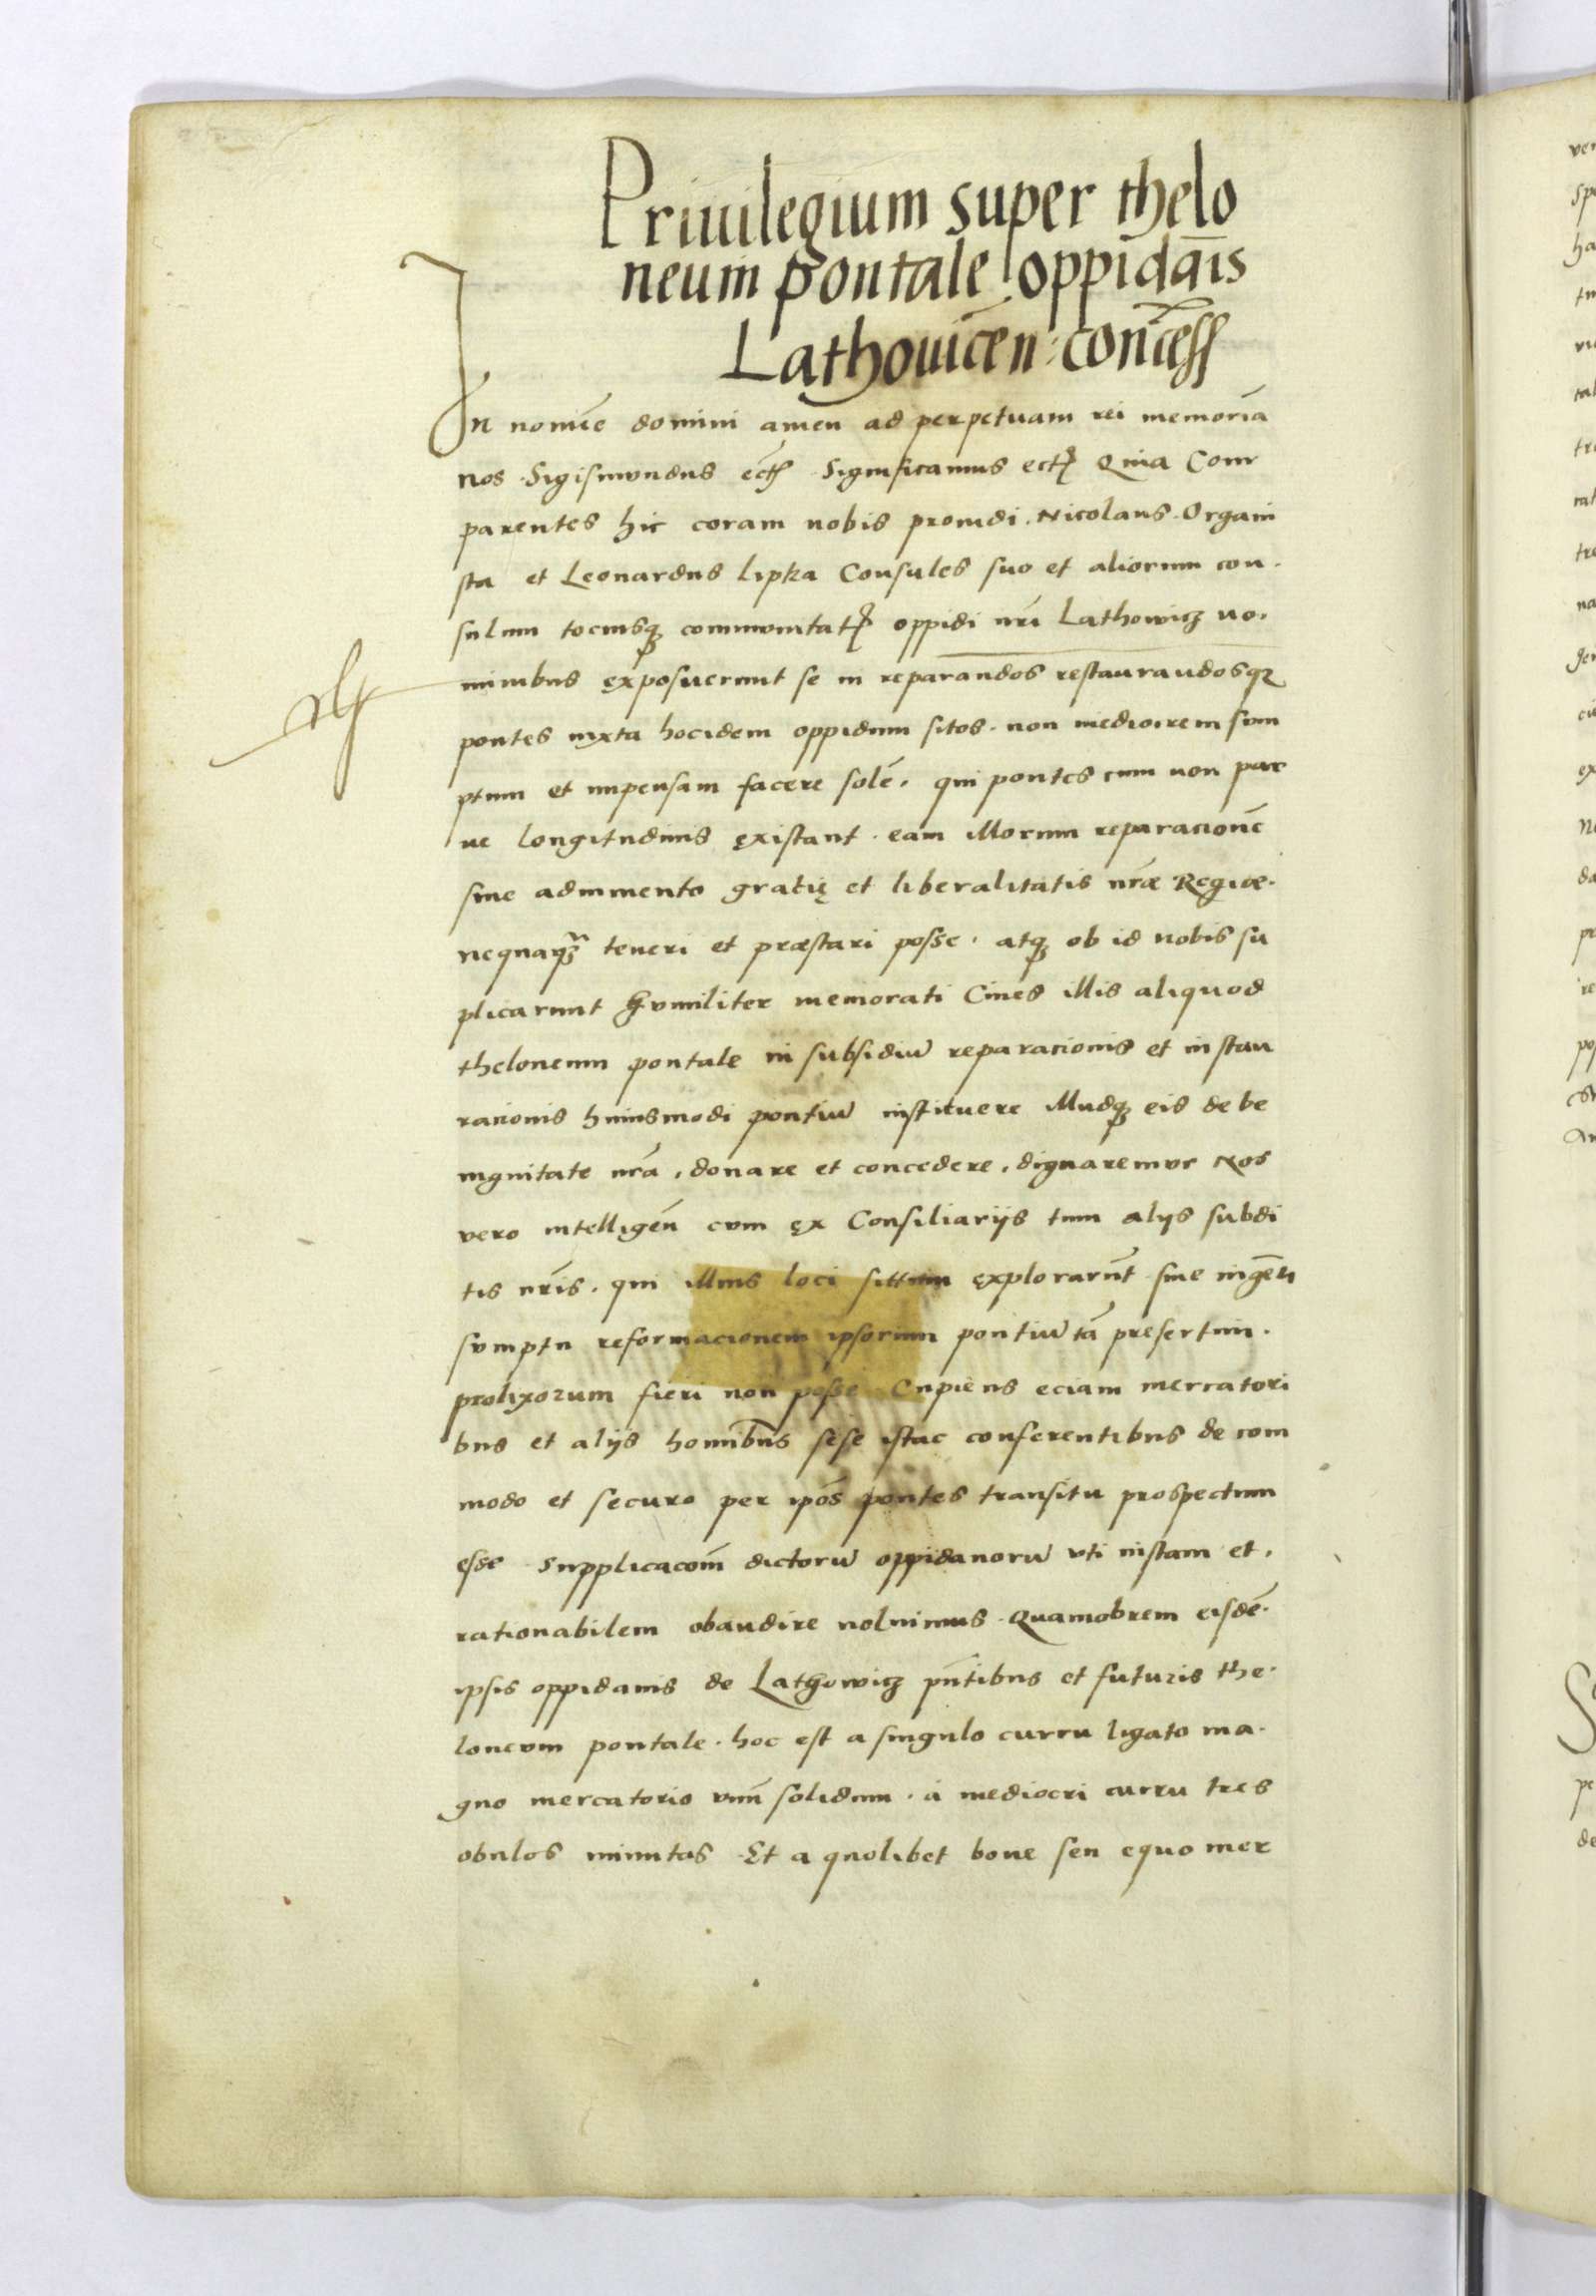 Priuilegium super thelo
neum pontale oppidanis
Lathouicen: concess
In nomīe domini amen ad perpetuam rei memoriā
nos Sigismundus ect Significamus ect Quia Com
parentes hic coram nobis prouidi. Nicolaus Organi
sta et Leonardus lipka Consules suo et aliorum con
sulum tociusq communitat oppidi nrī Lathowicz no.
minibus exposuerunt se in reparandos restaurandosq
pontes iuxta hocidem oppidum sitos. non mediocrem sum
ptum et impensam facere solē. qui pontes cum non par
ue longitudinis existant. eam illorum reparacionē
sine adiumento gratię et liberalitatis nræ Regiæ.
nequaq teneri et præstari posse. atq ob id nobis su
plicarunt humiliter memorati Ciues illis aliquod
theloneum pontale in subsidiū reparacionis et instau
racionis huiusmodi pontiū instituere illudq eis de be
nignitate nrā. donare et concedere. dignaremur Nos
vero intelligēn cum ex Consiliarijs tum alijs subdi
tis nrīs. qui illius loci sittum explorarūt sine ingēti
sumptu reformacionem ipsorum pontiū tā presertim.
prolixorum fieri non posse Cupiens eciam mercatori
bus et alijs hominībus sese istac conferentibus de com
modo et securo per ipōs pontes transitu prospectum
esse Supplicacōm dictorū oppidanorū vti iustam et.
rationabilem obaudire noluimus Quamobrem eisdē.
ipsis oppidanis de Lathowicz pn̄tibus et futuris the.
loneum pontale. hoc est a singulo curru ligato ma.
gno mercatorio vnū solidum. a mediocri curru tres
obulos minutas Et a quolibet boue seu equo mer